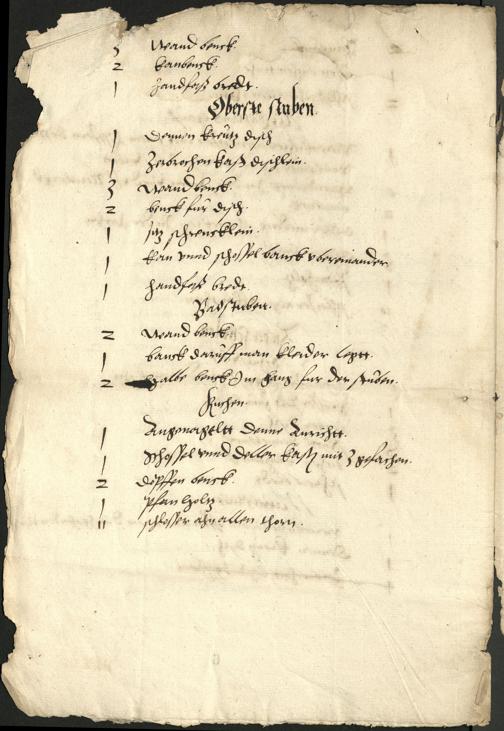 3 Wand benck.
2 kanbenck.
1 Handfaß bredt.
Oberste stuben
1 Dennen kreutz disch
1 Zerbrochen kast dischlein.
3 Wand benck.
2 benck für disch.
1 schrencklein.
1 kan vnnd schossel banck vbereinander
1 handfaß bredt.
Badstuben.
2 Wand benck.
1 banck daruff man kleider legtt.
2 halbe benck Im gang für der stuben.
Kuchen.
1 Angenageltt denne Anrichtt.
1 Schossel vnnd deller kast mit 3 gefachen.
2 döpffen benck.
1 Pfan holtz
11 schlosser ahn allen thorn.